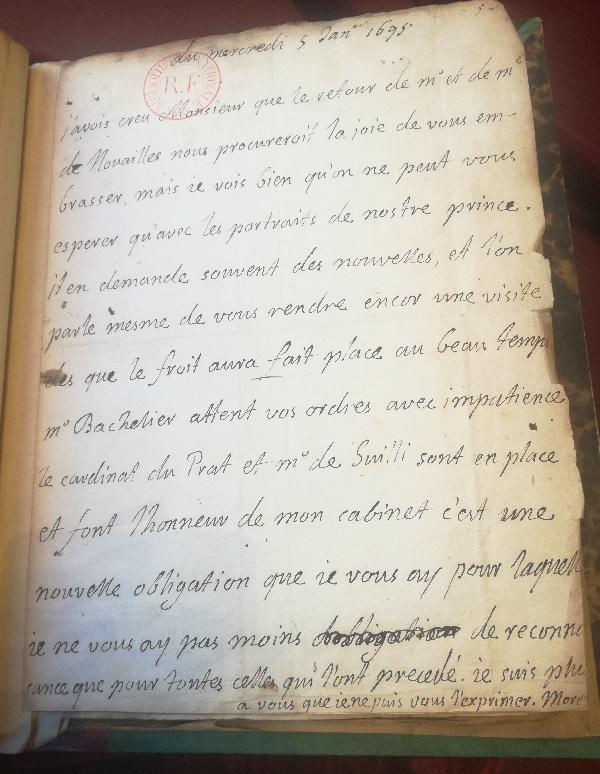 du mercredi 5 Janr 1695
R.F.
j'avois creu Monsieur que le retour de mr et de me
de Nouailles nous procureroit la joie de vous em-
brasser, mais ie vois bien qu'on ne peut vous
esperer qu'avec les portraits de nostre prince.
il en demande souvent des nouvelles, et l'on
parle mesme de vous rendre encor une visite
des que le froit aura fait place au beau temps
mr Bachelier attent vos ordres avec impatience
le cardinal du Prat et mr de Suilli sont en place
et font l'honneur de mon cabinet c'est une
nouvelle obligation que ie vous ay pour laquell
ie ne vous ay pas moins de reconn
sance que pour toutes celles qui l'ont precedé. ie suis plu
a vous que ie ne puis vous l'exprimer.